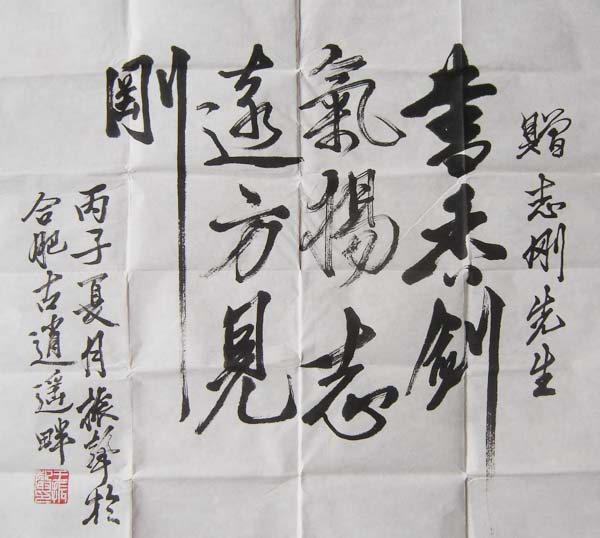 贈志刚先生
書香劍
氣揚志
遠方見
剛
丙子夏月振聲於
合肥古逍遥畔